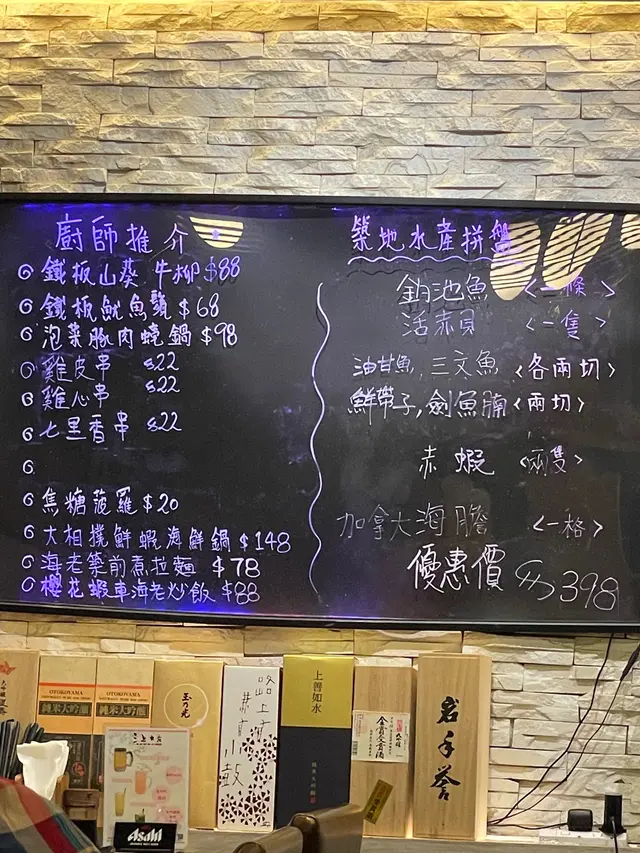 廚師推介
鐵板山葵牛柳 $88
鐵板魷魚鬚 $68
泡菜豚肉燒鍋 $98
雞皮串 $22
雞心串 $22
七里香串 $22
焦糖菠蘿 $20
大相撲鮮蝦海鮮鍋 $148
海老築前煮拉麵 $78
櫻花蝦車海老炒飯 $88
築地水產拼盤
釣池魚 <一條>
活赤貝 <一隻>
油甘魚,三文魚 <各兩切>
鮮帶子,劍魚腩 <兩切>
赤蝦 <兩隻>
加拿大海膽 <一格>
優惠價 $398
OTOKOYAMA
純米大吟醸
OTOKOYAMA
純米大吟醸
玉乃光
上善如水
純米大吟醸
金賞受賞酒
岩手誉
Asahi